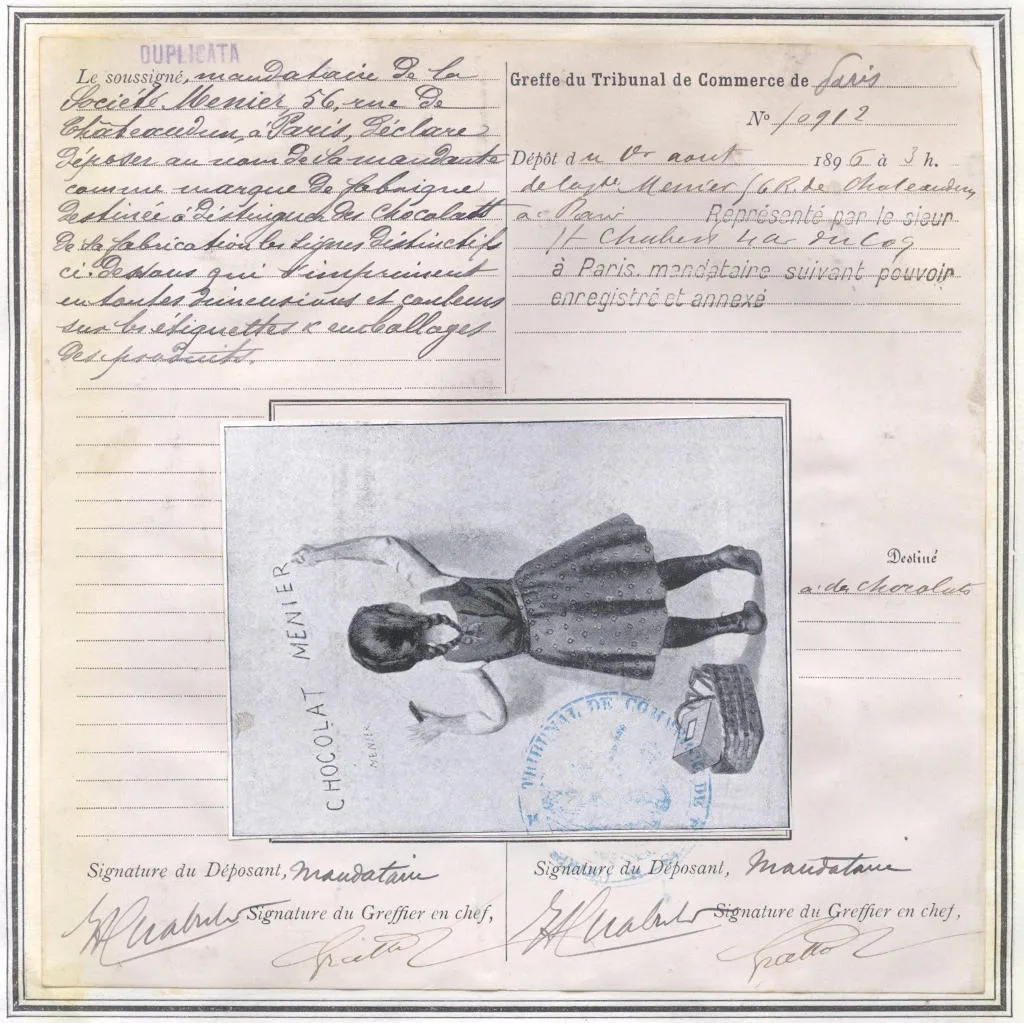 DUPLICATA
Le soussigné, mandataire de la
Société Menier, 56, rue de
Châteaudun, à Paris, déclare
déposer au nom de sa mandante
comme marque de fabrique
destinée à distinguer des chocolats
de sa fabrication les signes distinctifs
ci-dessous qui s'impriment
en toutes dimensions et couleurs
sur les étiquettes & emballages
des produits.
Greffe du Tribunal de Commerce de Paris
N° 10912
Dépôt du 1er aout 1896 à 3 h.
de la Sté Menier 56 R. de Chateaudun
a Paris Représenté par le sieur
du Coq
à Paris. mandataire suivant pouvoir
enregistré et annexé
CHOCOLAT MENIER
MENIER
TRIBUNAL DE COMMERCE DE
Destiné
a des chocolats
Signature du Déposant, Mandataire
Signature du Greffier en chef,
Signature du Déposant, Mandataire
Signature du Greffier en chef,